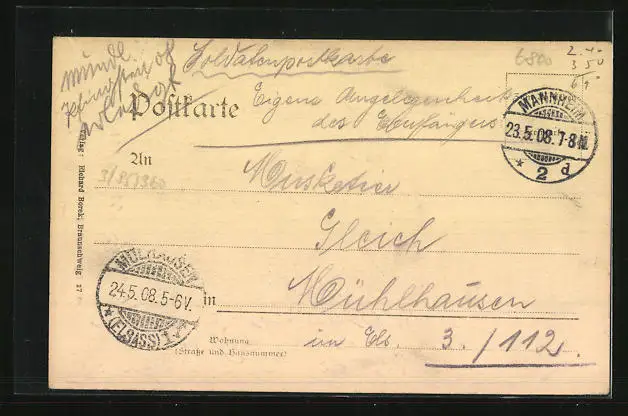 Soldatenpostkarte
Postkarte
Eigene Angelegenheit
des Empfängers
MANNHEIM
23.5.08.7-8N.
* 2 d
An
Musketier
Gleich
in Mühlhausen
Wohnung
(Straße und Hausnummer)
im Els. 3./112.
MÜLHAUSEN
24.5.08.5-6V.
* (ELSASS) 1
Verlag: Richard Borek, Braunschweig 17
6800
2.40
3 50